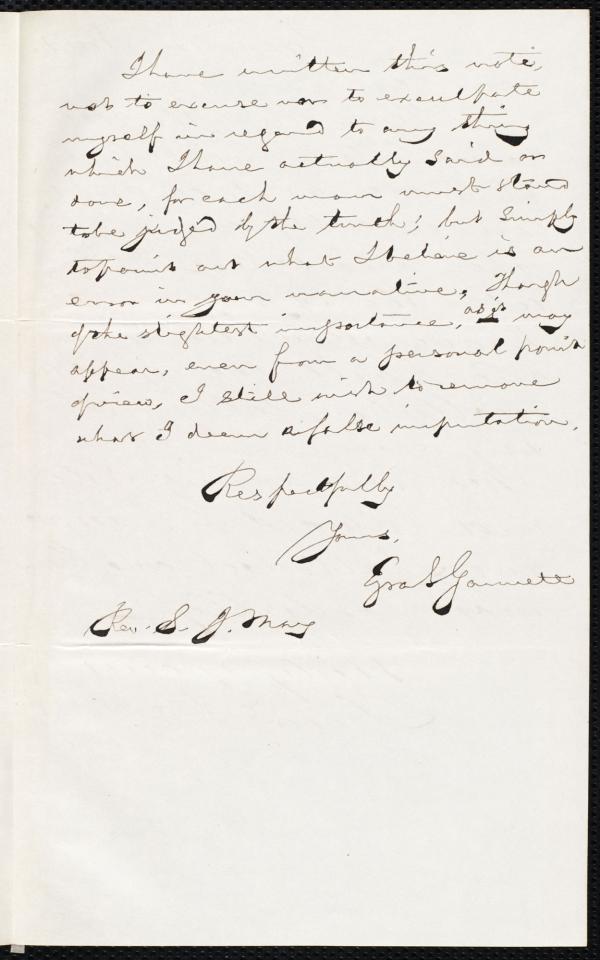 I have written this note,
not to excuse nor to exculpate
myself in regard to any thing
which I have actually said or
done, for each man must stand
to be judged by the truth; but simply
to point out what I believe is an
error in your narrative. Though
of the slightest importance, as it may
appear, even from a personal point
of view, I still wish to remove
what I deem a false imputation.
Respectfully
Yours,
Ezra S Gannett
Rev. S. J. May